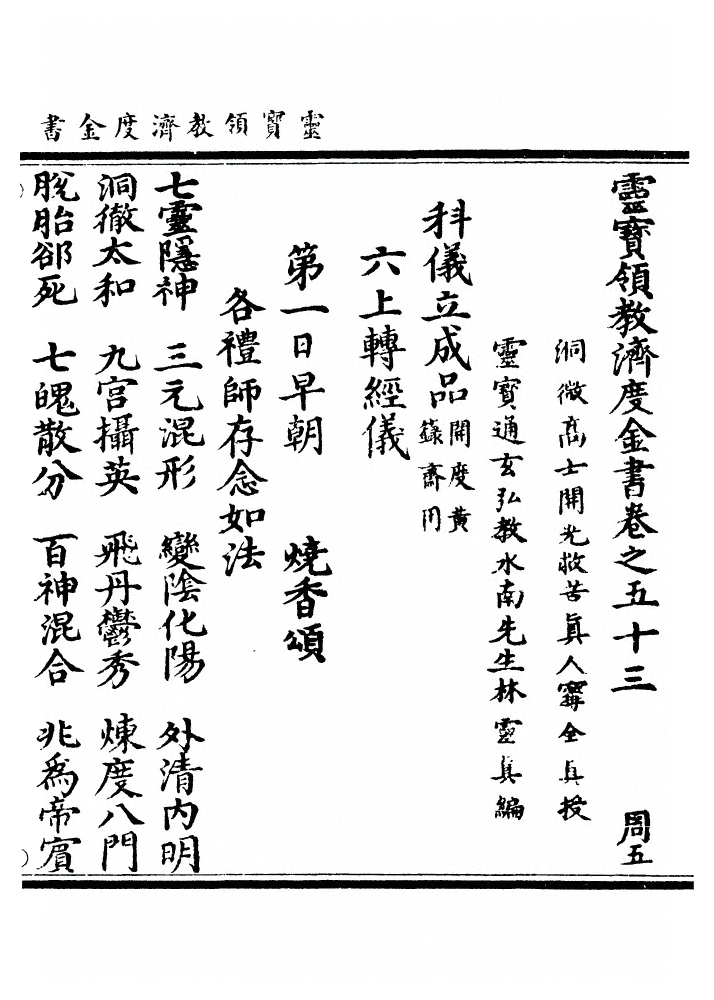 靈寶領教濟度金書
靈寶領教濟度金書卷之五十三 周五
洞微高士開光救苦眞人寗全眞授
靈寶通玄弘教水南先生林靈眞編
科儀立成品開度黃籙齋用
六上轉經儀
第一日早朝 燒香頌
各禮師存念如法
七靈隱神 三元混形 變陰化陽 外清内明
洞徹太和 九宮攝英 飛丹鬱秀 煉度八門
脫胎郤死 七魄散分 百神混合 兆爲帝賔